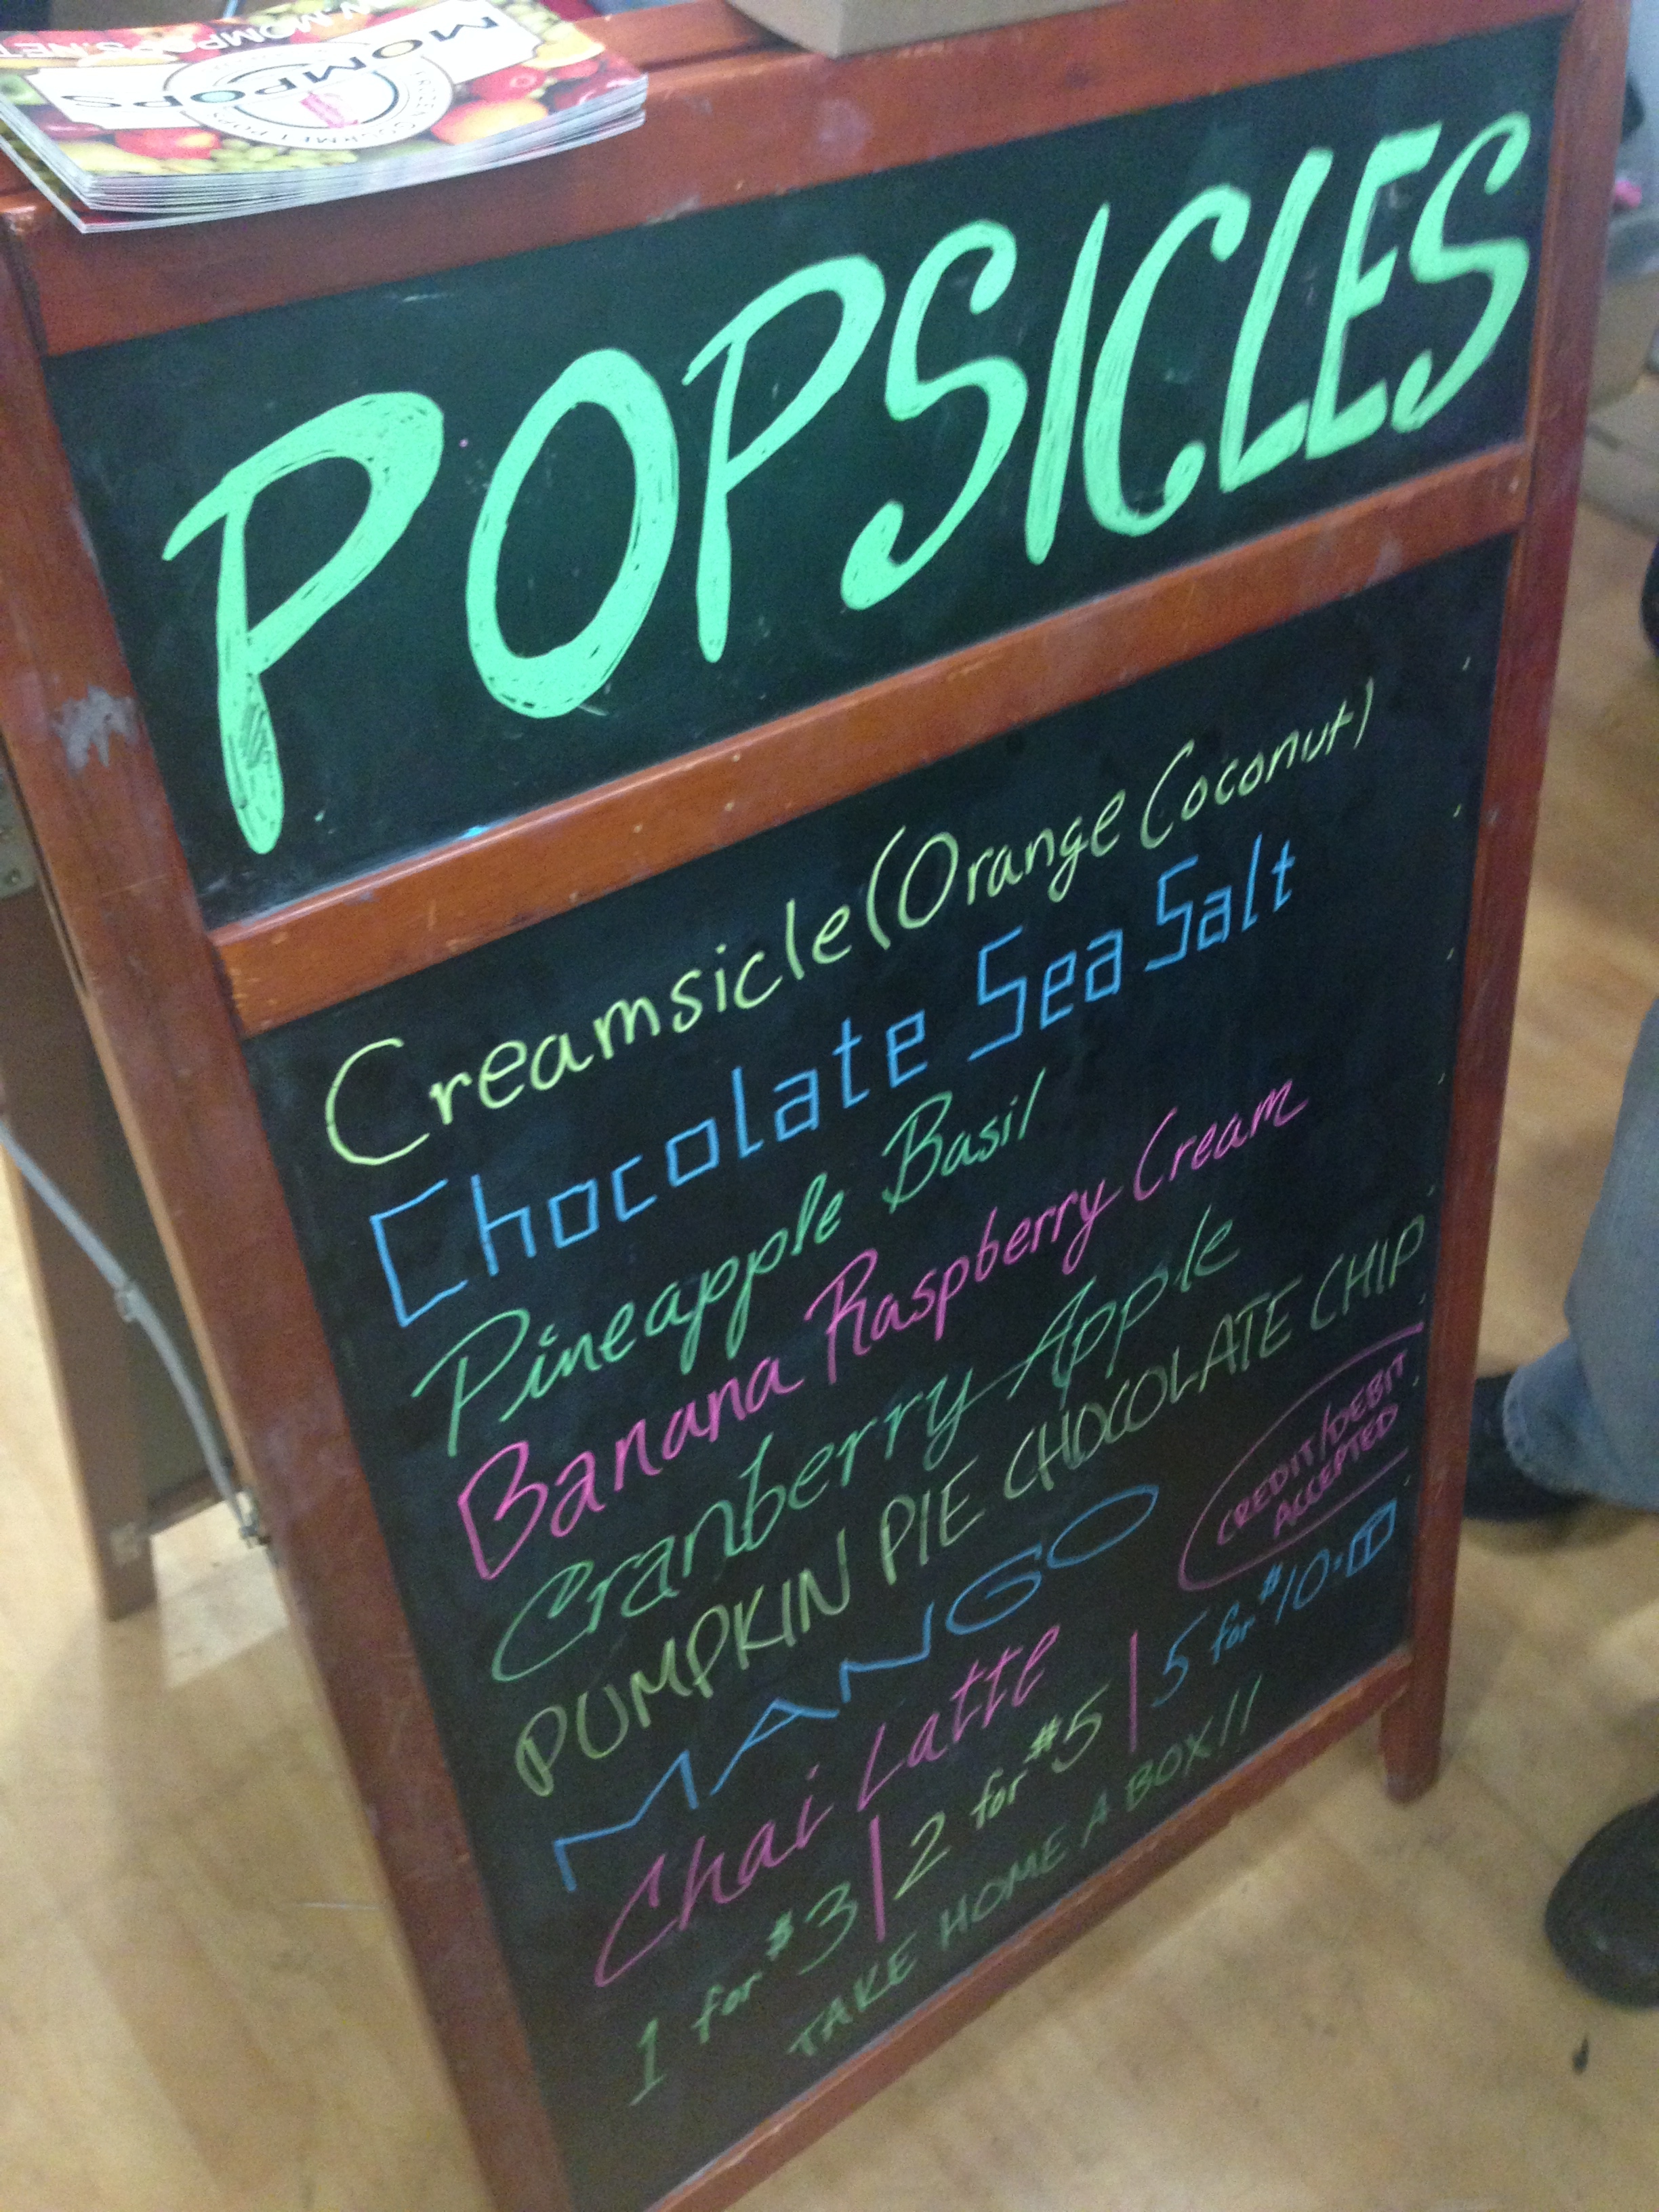 MOMPOPS
POPSICLES
Creamsicle (Orange Coconut)
Chocolate Sea Salt
Pineapple Basil
Banana Raspberry Cream
Cranberry Apple
PUMPKIN PIE CHOCOLATE CHIP
MANGO
CREDIT/DEBIT
ACCEPTED
Chai Latte
1 for $3 | 2 for $5 | 5 for $10.00
TAKE HOME A BOX!!